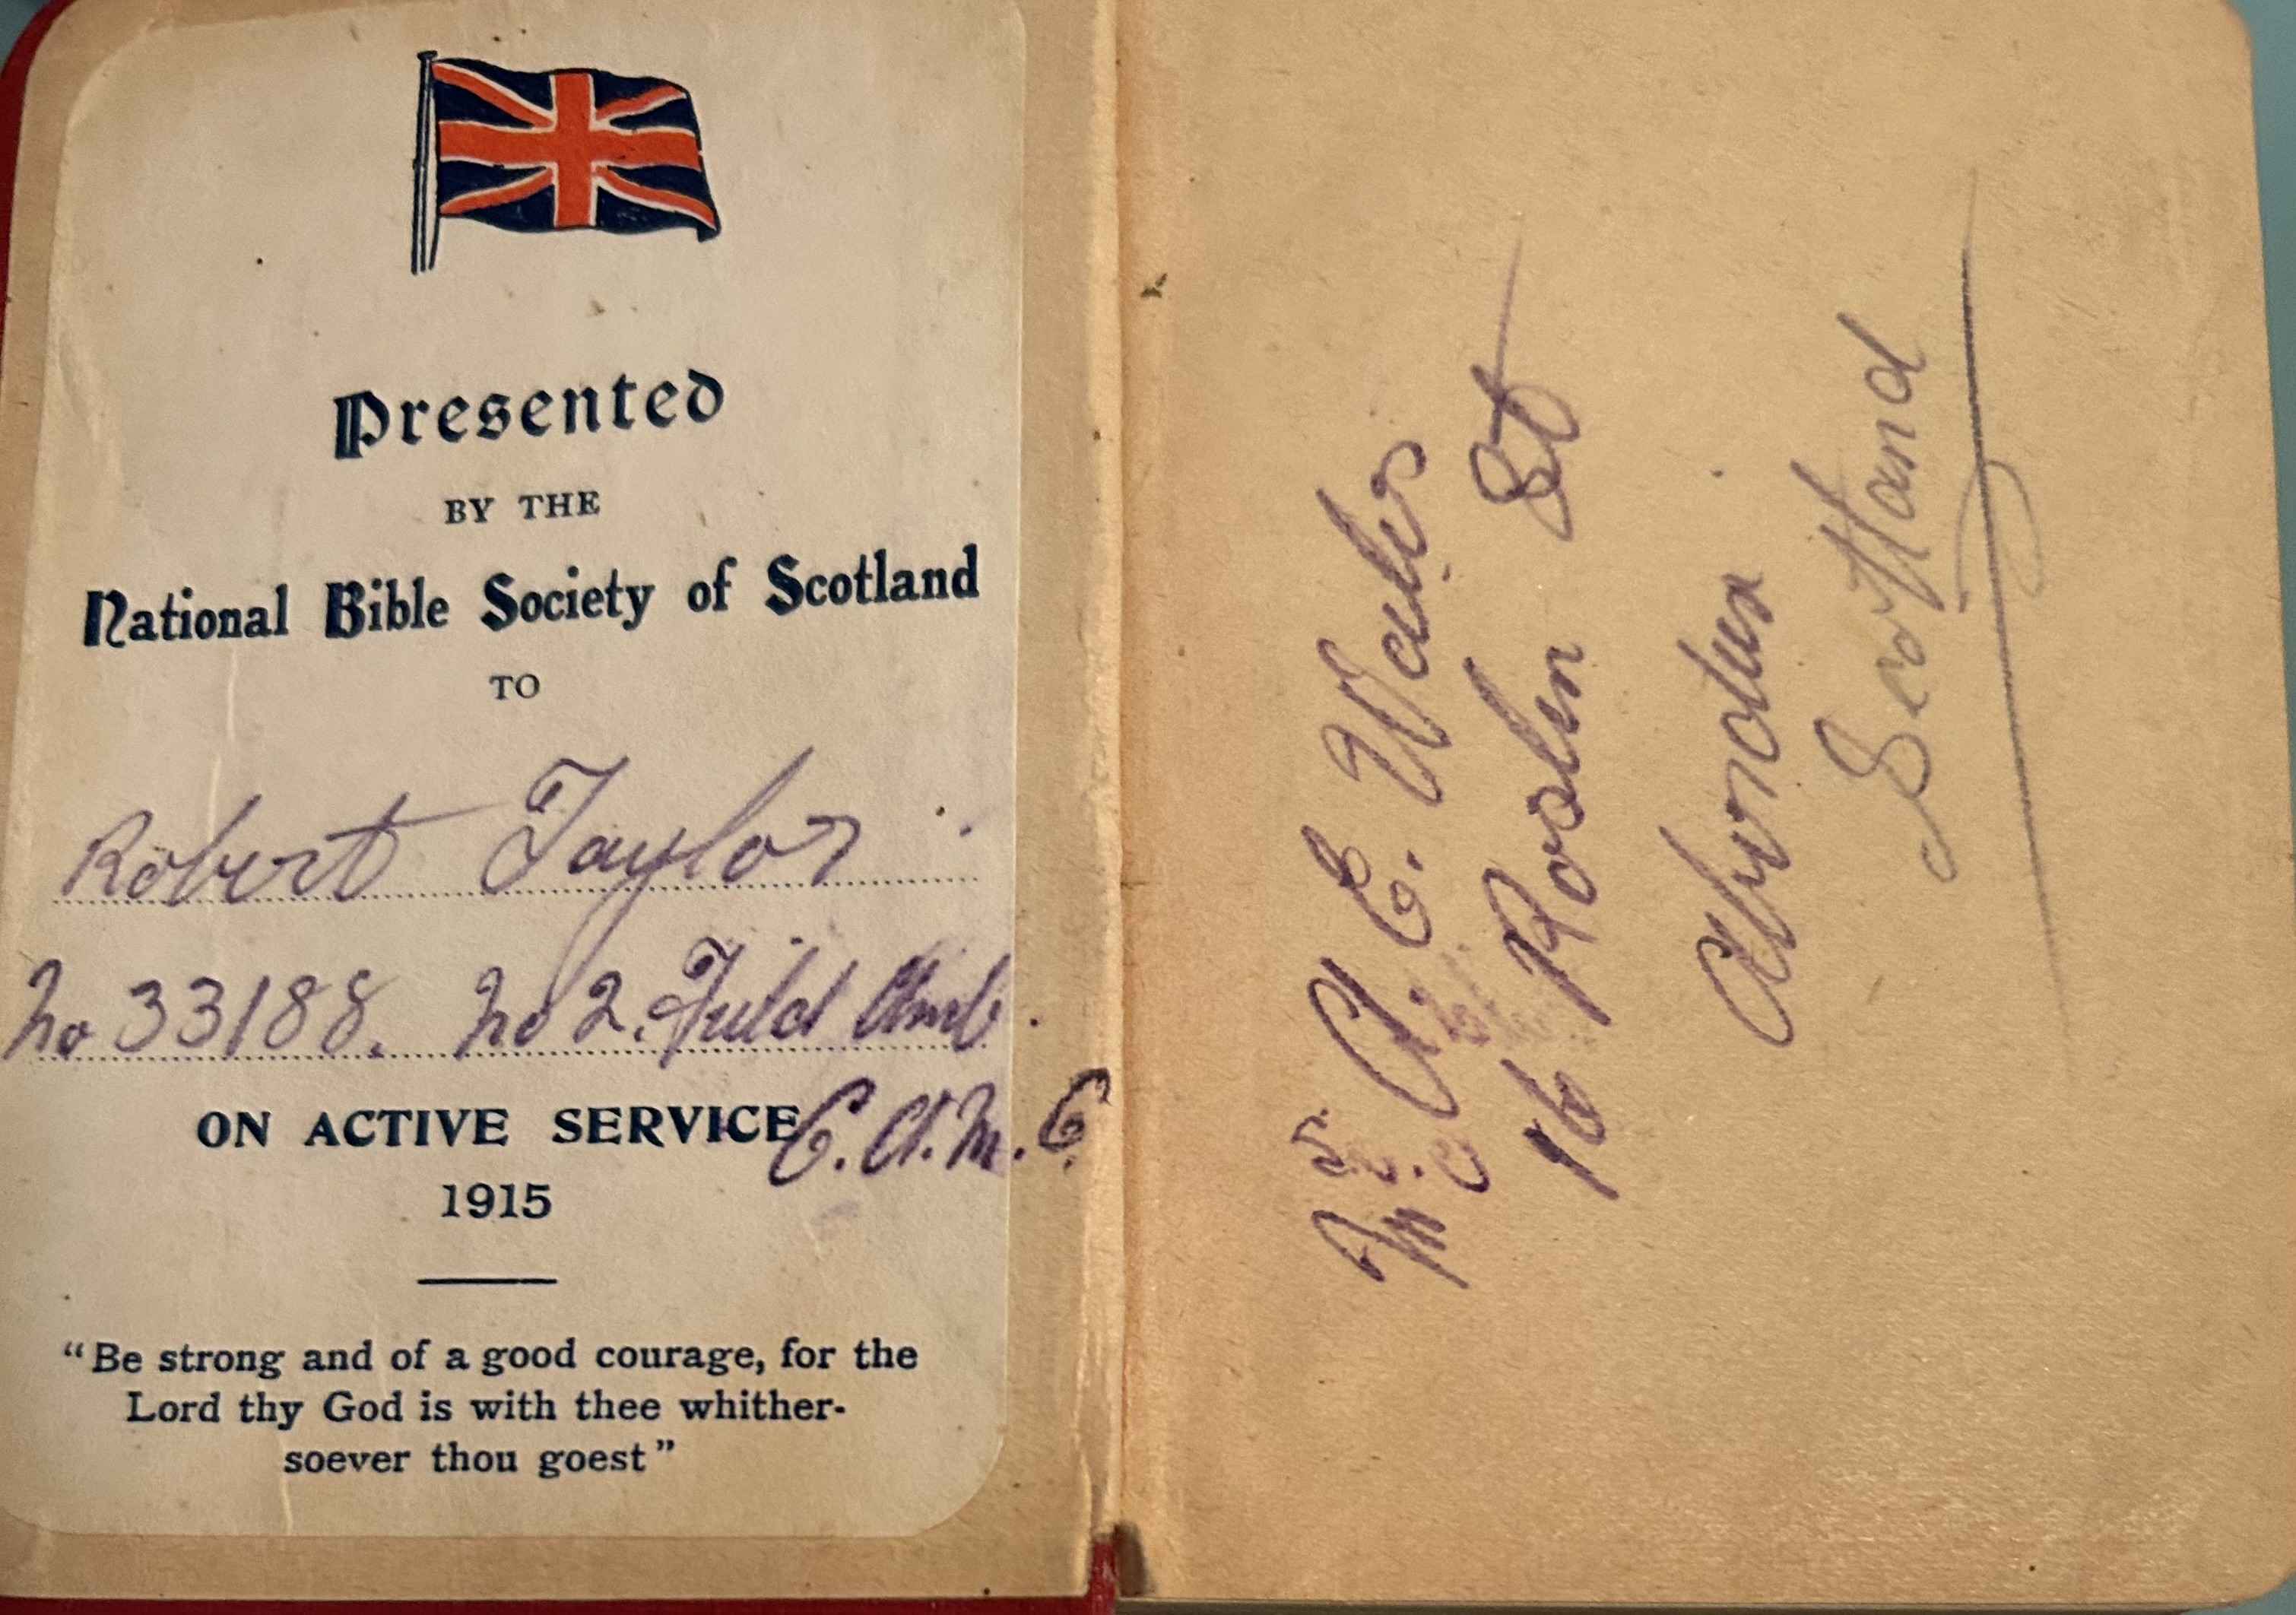 Presented
BY THE
National Bible Society of Scotland
TO
Robert Taylor
No 33188. No 2. Field Amb.
ON ACTIVE SERVICE C.A.M.C.
1915
“Be strong and of a good courage, for the
Lord thy God is with thee whither-
soever thou goest”
Mrs A. E. Wales
16 Roslin St
Aberdeen
Scotland